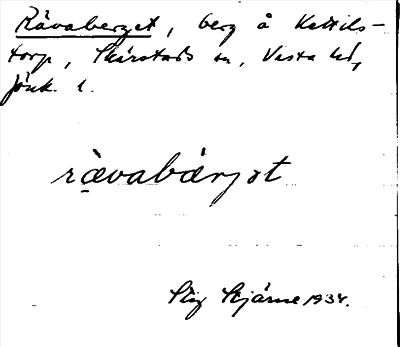 Rävaberget, berg å Kättils-
torp, Skärstads sn, Vista hd,
Jönk. l.
rävabärjət
Stig Stjärne 1934.